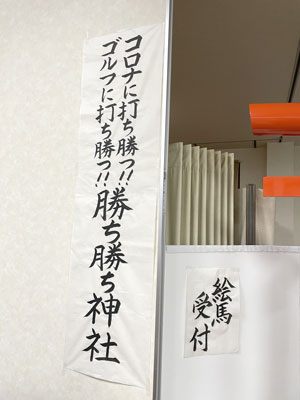 コロナに打ち勝つ!!
ゴルフに打ち勝つ!!
勝ち勝ち神社
絵馬
受付